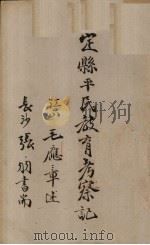 定縣平民教育考察記
毛應章述
長沙張
書耑